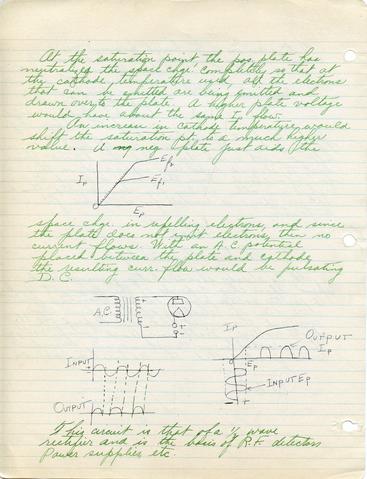 At the saturation point the pos. plate has
neutralized the space chge. completely so that at
the cathode temperature used all the electrons
that can be emitted are being emitted and
drawn over to the plate. A higher plate voltage
would have about the same Ip flow.
An increase in cathode temperature would
shift the saturation pt. to a much higher
value. A neg plate just aids the
Ef2
Ip
Ef1
Ep
space chge. in repelling electrons, and since
the plate does not emit electrons, then no
current flows. With an A.C potential
placed between the plate and cathode
the resulting curr. flow would be pulsating
D.C.
A.C.
+
-
o +
o -
Ip
OUTPUT
Ip
INPUT
O
Ep
INPUT Ep
- +
OUTPUT
This circuit is that of a ½ wave
rectifier and is the basis of R.F. detectors
Power supplies etc.